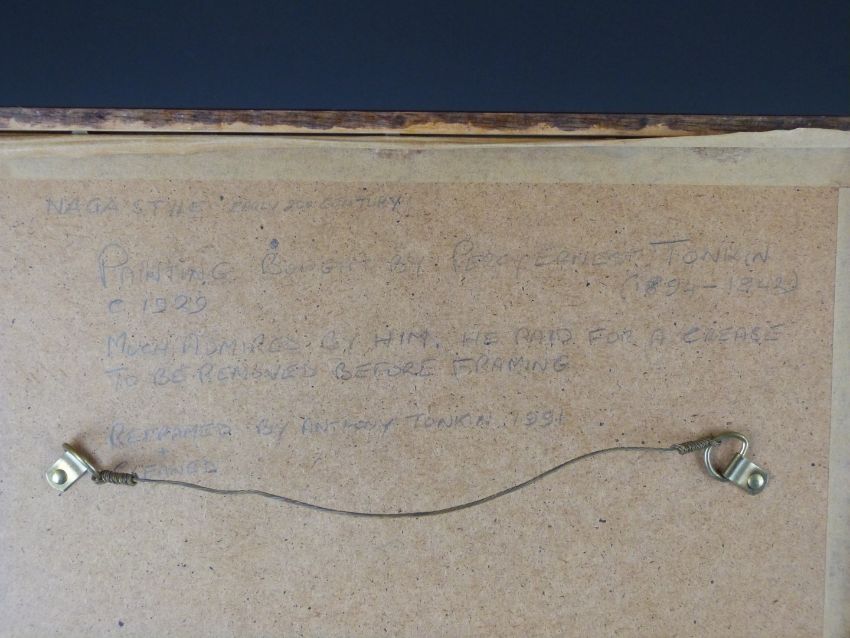 NAGA STYLE EARLY 20th CENTURY
PAINTING BOUGHT BY PERCY ERNEST TONKIN
(1894-1942)
c 1929
MUCH ADMIRED BY HIM. HE PAID FOR A CREASE
TO BE REMOVED BEFORE FRAMING
REFRAMED BY ANTHONY TONKIN 1991
+
CLEANED